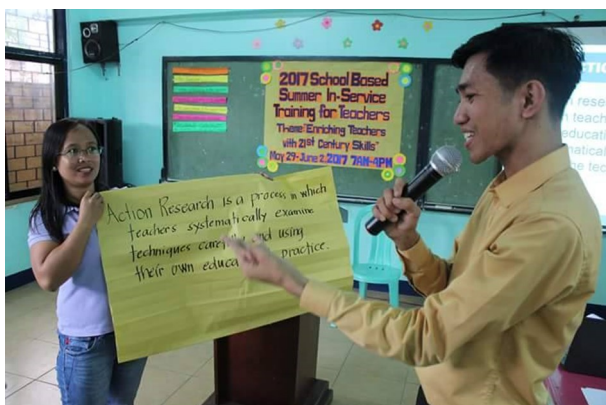 2017 School Based
Summer In-Service
Training for Teachers
Theme "Enriching Teachers
with 21st Century Skills"
May 29-June 2, 2017 7AM-4PM
Action Research is a process in which
teachers systematically examine
techniques and using
their own practice.